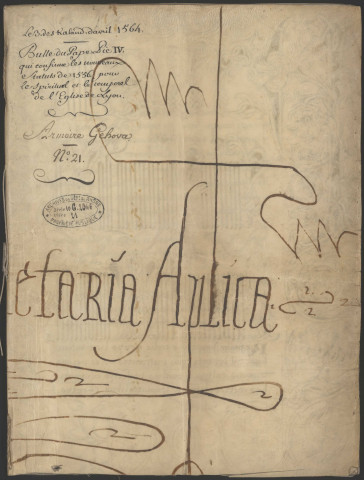 Le 3 des Kalend. d'avril 1564.
Bulle du Pape Pie IV.
qui confirme les nouveaux
statuts de 1556 pour
le spirituel et le temporel
de l'Eglise de Lyon.
Armoire Gehova,
N.º 21.
etaria Aulica